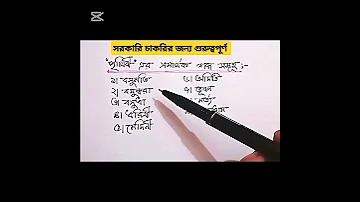 সরকারি চাকরির জন্য গুরুত্বপূর্ণ
"পৃথিবী" এর সমার্থক শব্দ সমূহ :-
১) বসুমতি
২) বসুন্ধরা
৩) বসুধা
৪) ধরিত্রী
৫) মেদিনী
৬) অবনি
৭) ভুবন
মর্ত্য